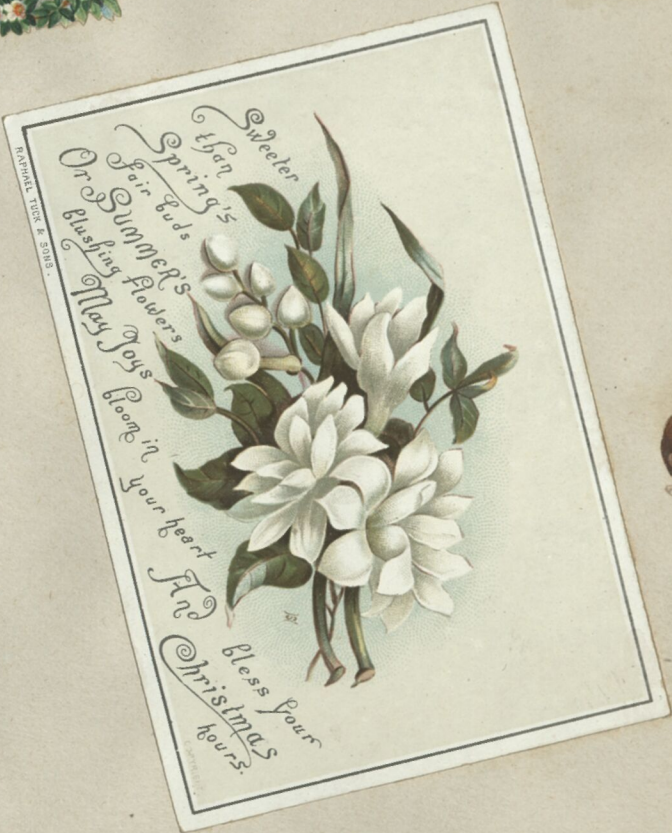 Sweeter
than
Spring's
fair buds
Or SUMMER'S
blushing flowers
May Joys
bloom in
your heart
And
bless your
Christmas
hours.
RAPHAEL TUCK & SONS.